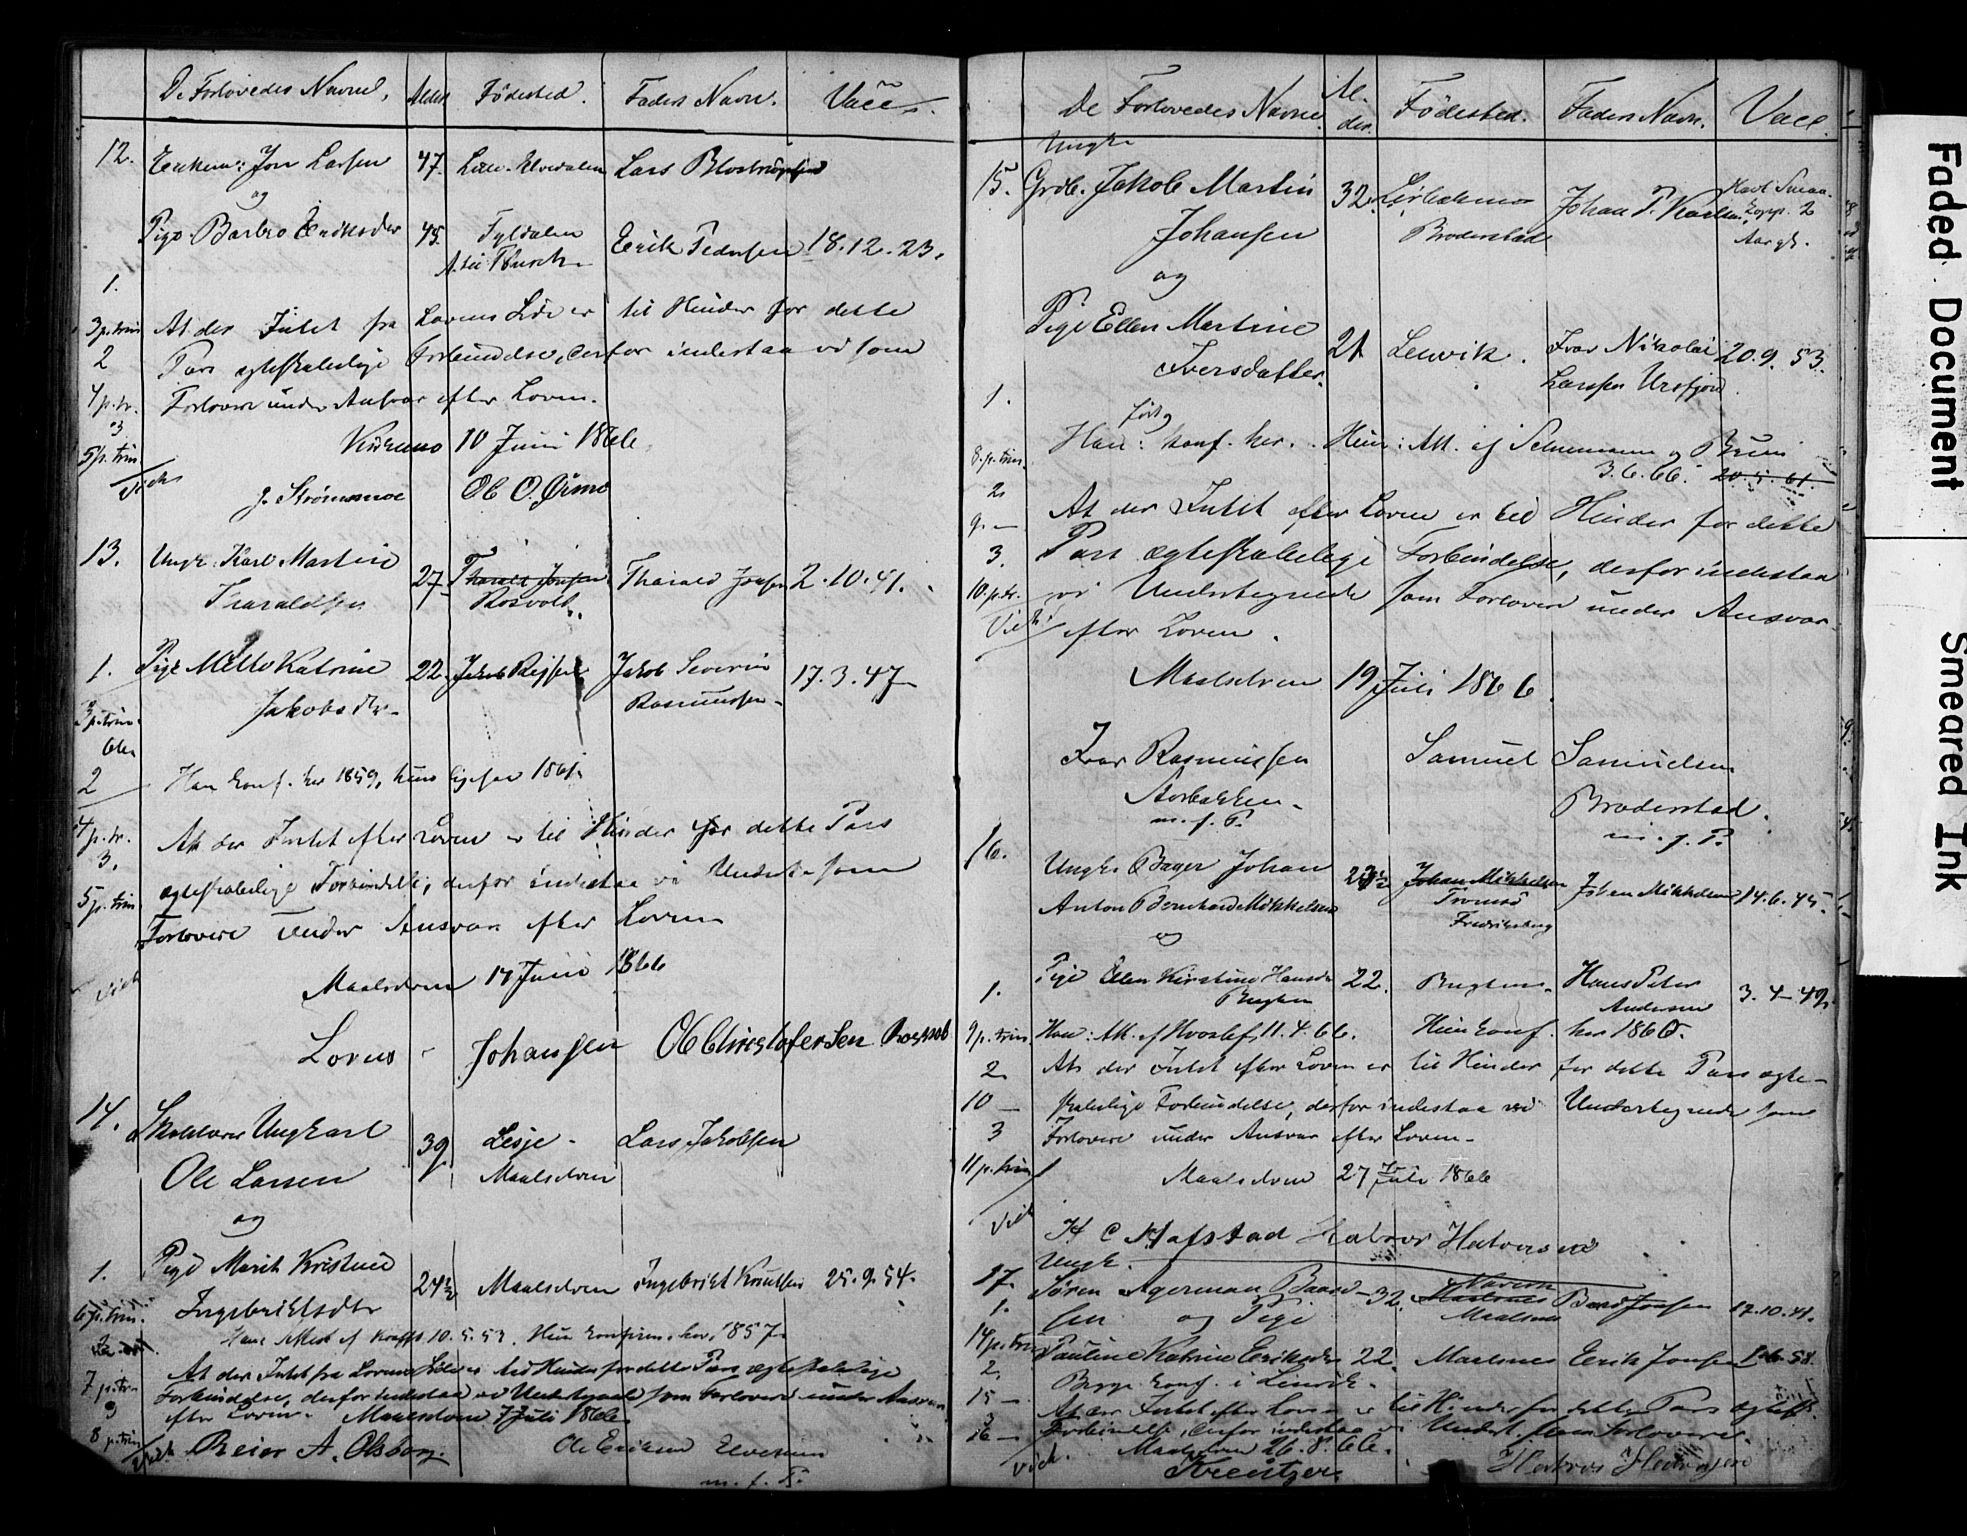 De Forlovedes Navne. Alder Fødested. Faders Navn. Vacc.
12. Enkem: Jon Larsen 47. Lille-Elvedalen Lars
og
Pige Barbro Eriksdtr 45 Tyldalen Erik Pedersen 18.12.23.
1.
3 p. trin At der Intet fra Lovens Side er til Hinder for dette
2 Pars ægteskabelige Forbindelse, derfor indestaa vi som
4 p. tr. Forlovere under Ansvar efter Loven.
3 Kirkemo 10 Juni 1866
5 p. trin
Viet J. Strømsmoe Ole O. Ørmo
13. Ungk. Karl Martin 27 Tharald Jonsen Tharald Jonsen 2.10.41.
Tharaldsen Rosvold
1. Pige Mette Katrine 22 Jakob Jakob Severin 17.3.47
Jakobsdtr Rasmussen
3 p. trin
2 Han konf. her 1859, hun ligesaa 1861.
4 p. tr. At der Intet efter Loven er til Hinder for dette Pars
3.
5 p. trin ægteskabelige Forbindelse, derfor indestaa vi Underte som
Forlovere under Ansvar efter Loven
Viet Maalselven 17 Juni 1866
Lorns Johansen Ole Christofersen Rosvold
14. Skolelærer Ungkarl 39 Lesje Lars Jakobsen
Ole Larsen Maalselven
og
1. Pige Marit Kristine 24½ Maalselven Ingebrigt Knudsen 25.9.54.
6 p. trin. Ingebrigtsdtr
Han Att. af Krafft 10.5.53. Hun konfirm. her 1857.
At der Intet fra Lovens Side er til Hinder for dette Pars ægteskabelige
7 p. tr. Forbindelse, derfor indestaa vi Undertegnede som Forlovere under Ansvar
3 efter Loven. Maalselven 7 Juli 1866
8 p. trin
Viet Beier A. Olsborg Ole Eriksen Elvevum
m. f. P.
De Forlovedes Navne Alder. Fødested. Faders Navn. Vacc.
Ungk.
15. Grdb. Jakob Martin 32 Johan P. Karlsen Havt Smaa
Johansen Broderstad kopp. 2
og Aar gl.
Pige Ellen Martine 21 Lenvik. Ivar Nikolai 20.9.53.
Iversdatter. Larsen Ursfjord
1.
født og
8. p. trin. Han: konf. her. Hun: Att. af Schnemann og Bruun
3.6.66. 20.5.61.
2 At der Intet efter Loven er til Hinder for dette
9. —
3. Pars ægteskabelige Forbindelse, derfor indestaa
10. p. tr. vi Undertegnede som Forlovere under Ansvar
Viet efter Loven.
Maalselven 19 Juli 1866
Ivar Rasmussen Samuel Samuelsen
Aarbakken Broderstad.
m. f. P. m. f. P.
16. Ungk. Bager Johan 23½ Johan Mikkelsen Johan Mikkelsen 14.6.45.
Anton Bernhard Mikkelsen Tromsø
og Fredriksberg
1. Pige Ellen Kirstine Hansdr 22. Hans Peter 3.4.49.
Andersen
9 p. trin. Han: Att. af Hvoslef 11.4.66. Hun konf. her 1860.
2 At der Intet efter Loven er til Hinder for dette Pars ægte-
10 — skabelige Forbindelse, derfor indestaa vi Undertegnede som
3 Forlovere under Ansvar efter Loven.
11 p. trin Maalselven 27 Juli 1866
Viet H C Hafstad Halvor Halvorsen
Ungk.
17. Søren Agerman Baard- 32. Maalsnes Baard Jonsen 12.10.41.
1. sen og Pige
14 p. trin Pauline Katrine Eriksdtr 22. Maalsnes Erik Jonsen
2. Begge konf. i Lenvik.
15 — At der Intet efter Loven er til Hinder for dette Pars ægtesk.
3
16 — Forbindelse, derfor indestaa vi Undert. som Forlovere.
Viet. Maalselven 26.8.66.
Kreutzer Halvor Halvorsen
Faded Document
Smeared Ink